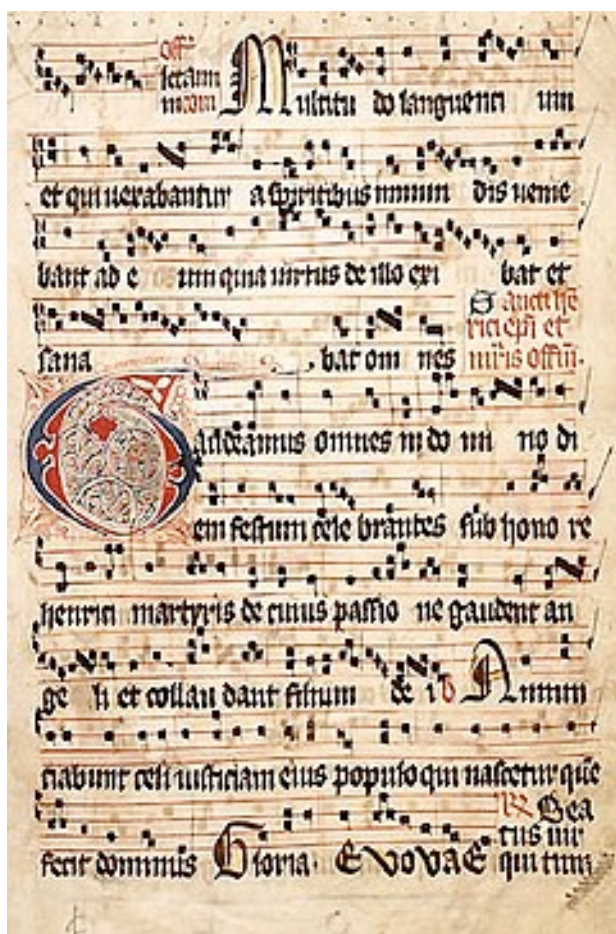 Multitu do languenti um
et qui uexabantur a spiritibus inmun dis uenie
bant ad e um quia uirtus de illo exi bat et
sana bat om nes
Sancti he
rici epi et
mris offm.
Gaudeamus omnes in do mi no di
em festum cele brantes sub hono re
henrici martyris de cuius passio ne gaudent an
ge li et collau dant filium de i Annun
ciabunt celi iusticiam eius populo qui nascetur que
fecit dominus Gloria. EVOVAE
Bea
tus uir
qui tim